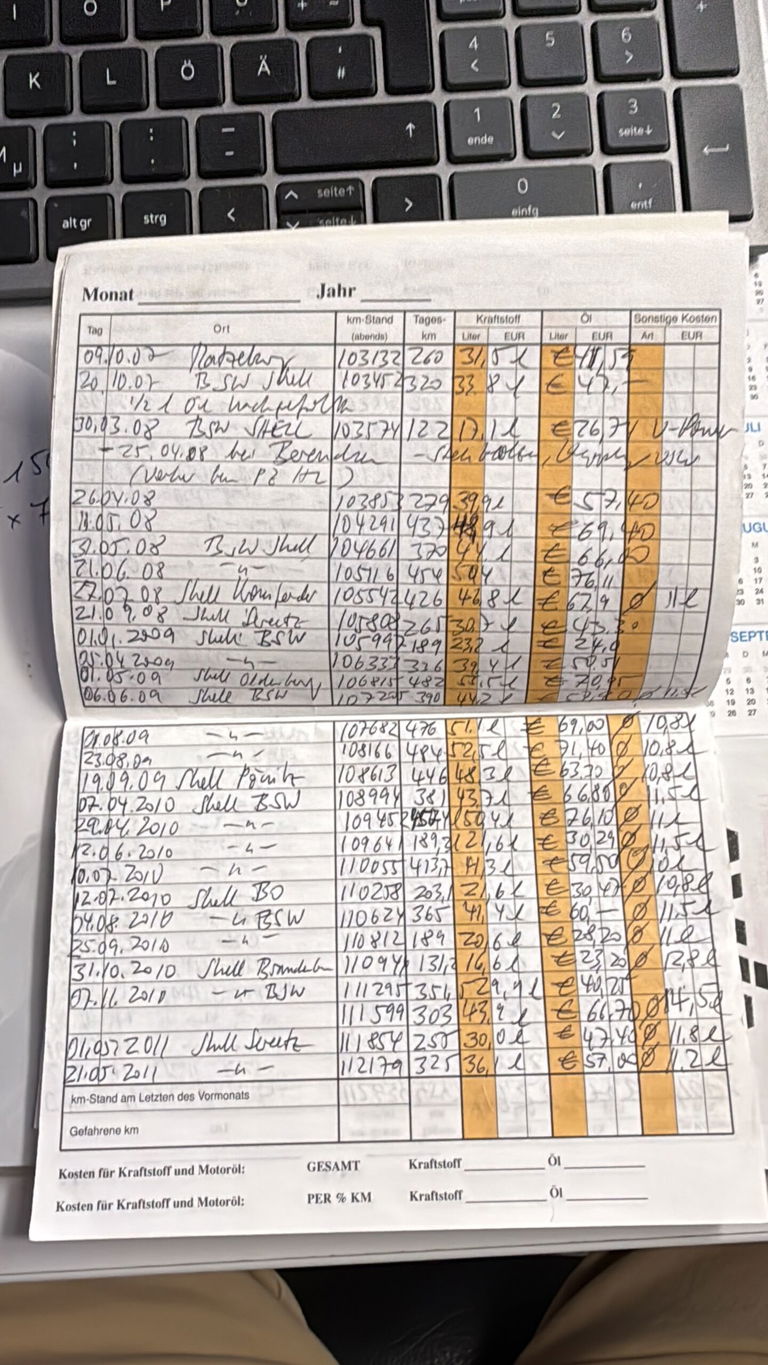 K L Ö Ä ' #
4 5 6
1 ende 2 3 seite↓
; , : . _ -
0 einfg , entf
alt gr strg < seite↑ seite↓ >
Monat Jahr
Tag Ort km-Stand (abends) Tages-km Kraftstoff Liter EUR Öl Liter EUR Sonstige Kosten Art EUR
09.10.07 Ratzeburg 103132 260 31,5 l €
20.10.07 BSW Shell 103452 320 33,8 l € 47,—
1/2 l Öl nachgefüllt
30.03.08 BSW SHELL 103574 122 17,1 l € 26,71 V-Power
- 25.04.08 bei
26.04.08 103853 279 39,9 l € 57,40
11.05.08 104291 437 € 69,40
31.05.08 BSW Shell 104661 370 44 l € 66,00
21.06.08 -"- 105116 454 50,4 € 76,11
27.07.08 Shell 105542 426 46,8 l € 67,9 Ø 11 l
21.09.08 Shell 105808 265 30,7 l € 43,30
01.01.2009 Shell BSW 105997 189 23,2 l € 24,0
25.04.2009 -"- 106333 326 39,4 l € 50,51
01.05.09 Shell Oldenburg 106815 482 53,5 l € 70,95
06.06.09 Shell BSW 107205 390 44,2 l €
01.08.09 -"- 107682 476 51,1 l € 69,00 Ø 10,8 l
23.08.09 -"- 108166 484 52,5 l € 71,40 Ø 10,8 l
19.09.09 Shell 108613 446 48,3 l € 63,70 Ø 10,8 l
07.04.2010 Shell BSW 108994 381 43,7 l € 66,80 Ø 11,5 l
29.04.2010 -"- 109452 457,4 50,4 l € 76,10 Ø 11 l
12.06.2010 -"- 109641 189,3 21,6 l € 30,29 Ø 11,5 l
10.07.2010 -"- 110055 413,7 41,3 l € 59,50 Ø
12.07.2010 Shell BO 110258 203,1 21,6 l € 30,47 Ø 10,8 l
04.08.2010 -"- BSW 110624 365 41,4 l € 60,— Ø 11,5 l
25.09.2010 -"- 110812 189 20,6 l € 28,20 Ø 11 l
31.10.2010 Shell 110944 131,2 16,6 l € 23,20 Ø 12,8 l
07.11.2010 -"- BSW 111295 351,5 29,9 l € 40,25
111599 303 43,9 l € 66,70 Ø 14,5 l
2011 Shell 111854 255 30,0 l € 47,40 Ø 11,8 l
21.05.2011 -"- 112179 325 36,1 l € 57,00 Ø 11,2 l
km-Stand am Letzten des Vormonats
Gefahrene km
Kosten für Kraftstoff und Motoröl: GESAMT Kraftstoff Öl
Kosten für Kraftstoff und Motoröl: PER % KM Kraftstoff Öl